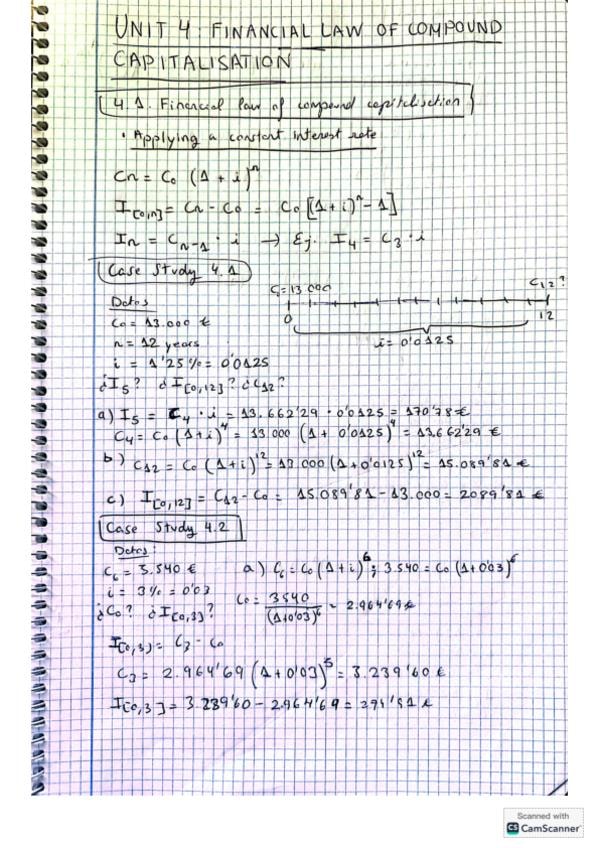 UNIT 4: FINANCIAL LAW OF COMPOUND
CAPITALISATION
4.1. Financial law of compound capitalisation
· Applying a constant interest rate
Cn = C₀ (1 + i)ⁿ
I[0,n] = Cn - C₀ = C₀ [(1+i)ⁿ - 1]
In = Cn-1 · i → Ej. I₄ = C₃ · i
Case Study 4.1
C₀ = 13.000
C12?
0
12
i = 0'0125
Datos
C₀ = 13.000 €
n = 12 years
i = 1'25% = 0'0125
¿I₅? ¿I[0,12]? ¿C12?
a) I₅ = C₄ · i = 13.662'29 · 0'0125 = 170'78 €
C₄ = C₀ (1+i)⁴ = 13 000 (1 + 0'0125)⁴ = 13.662'29 €
b) C12 = C₀ (1+i)¹² = 13.000 (1+0'0125)¹² = 15.089'81 €
c) I[0,12] = C12 - C₀ = 15.089'81 - 13.000 = 2089'81 €
Case Study 4.2
Datos:
C₆ = 3.540 €
i = 3% = 0'03
¿C₀? ¿I[0,3]?
a) C₆ = C₀ (1+i)⁶; 3.540 = C₀ (1+0'03)⁶
C₀ = 3540 / (1+0'03)⁶ = 2.964'69 €
I[0,3] = C₃ - C₀
C₃ = 2.964'69 (1+0'03)³ = 3.239'60 €
I[0,3] = 3.239'60 - 2.964'69 = 274'91 €
Scanned with
CS CamScanner